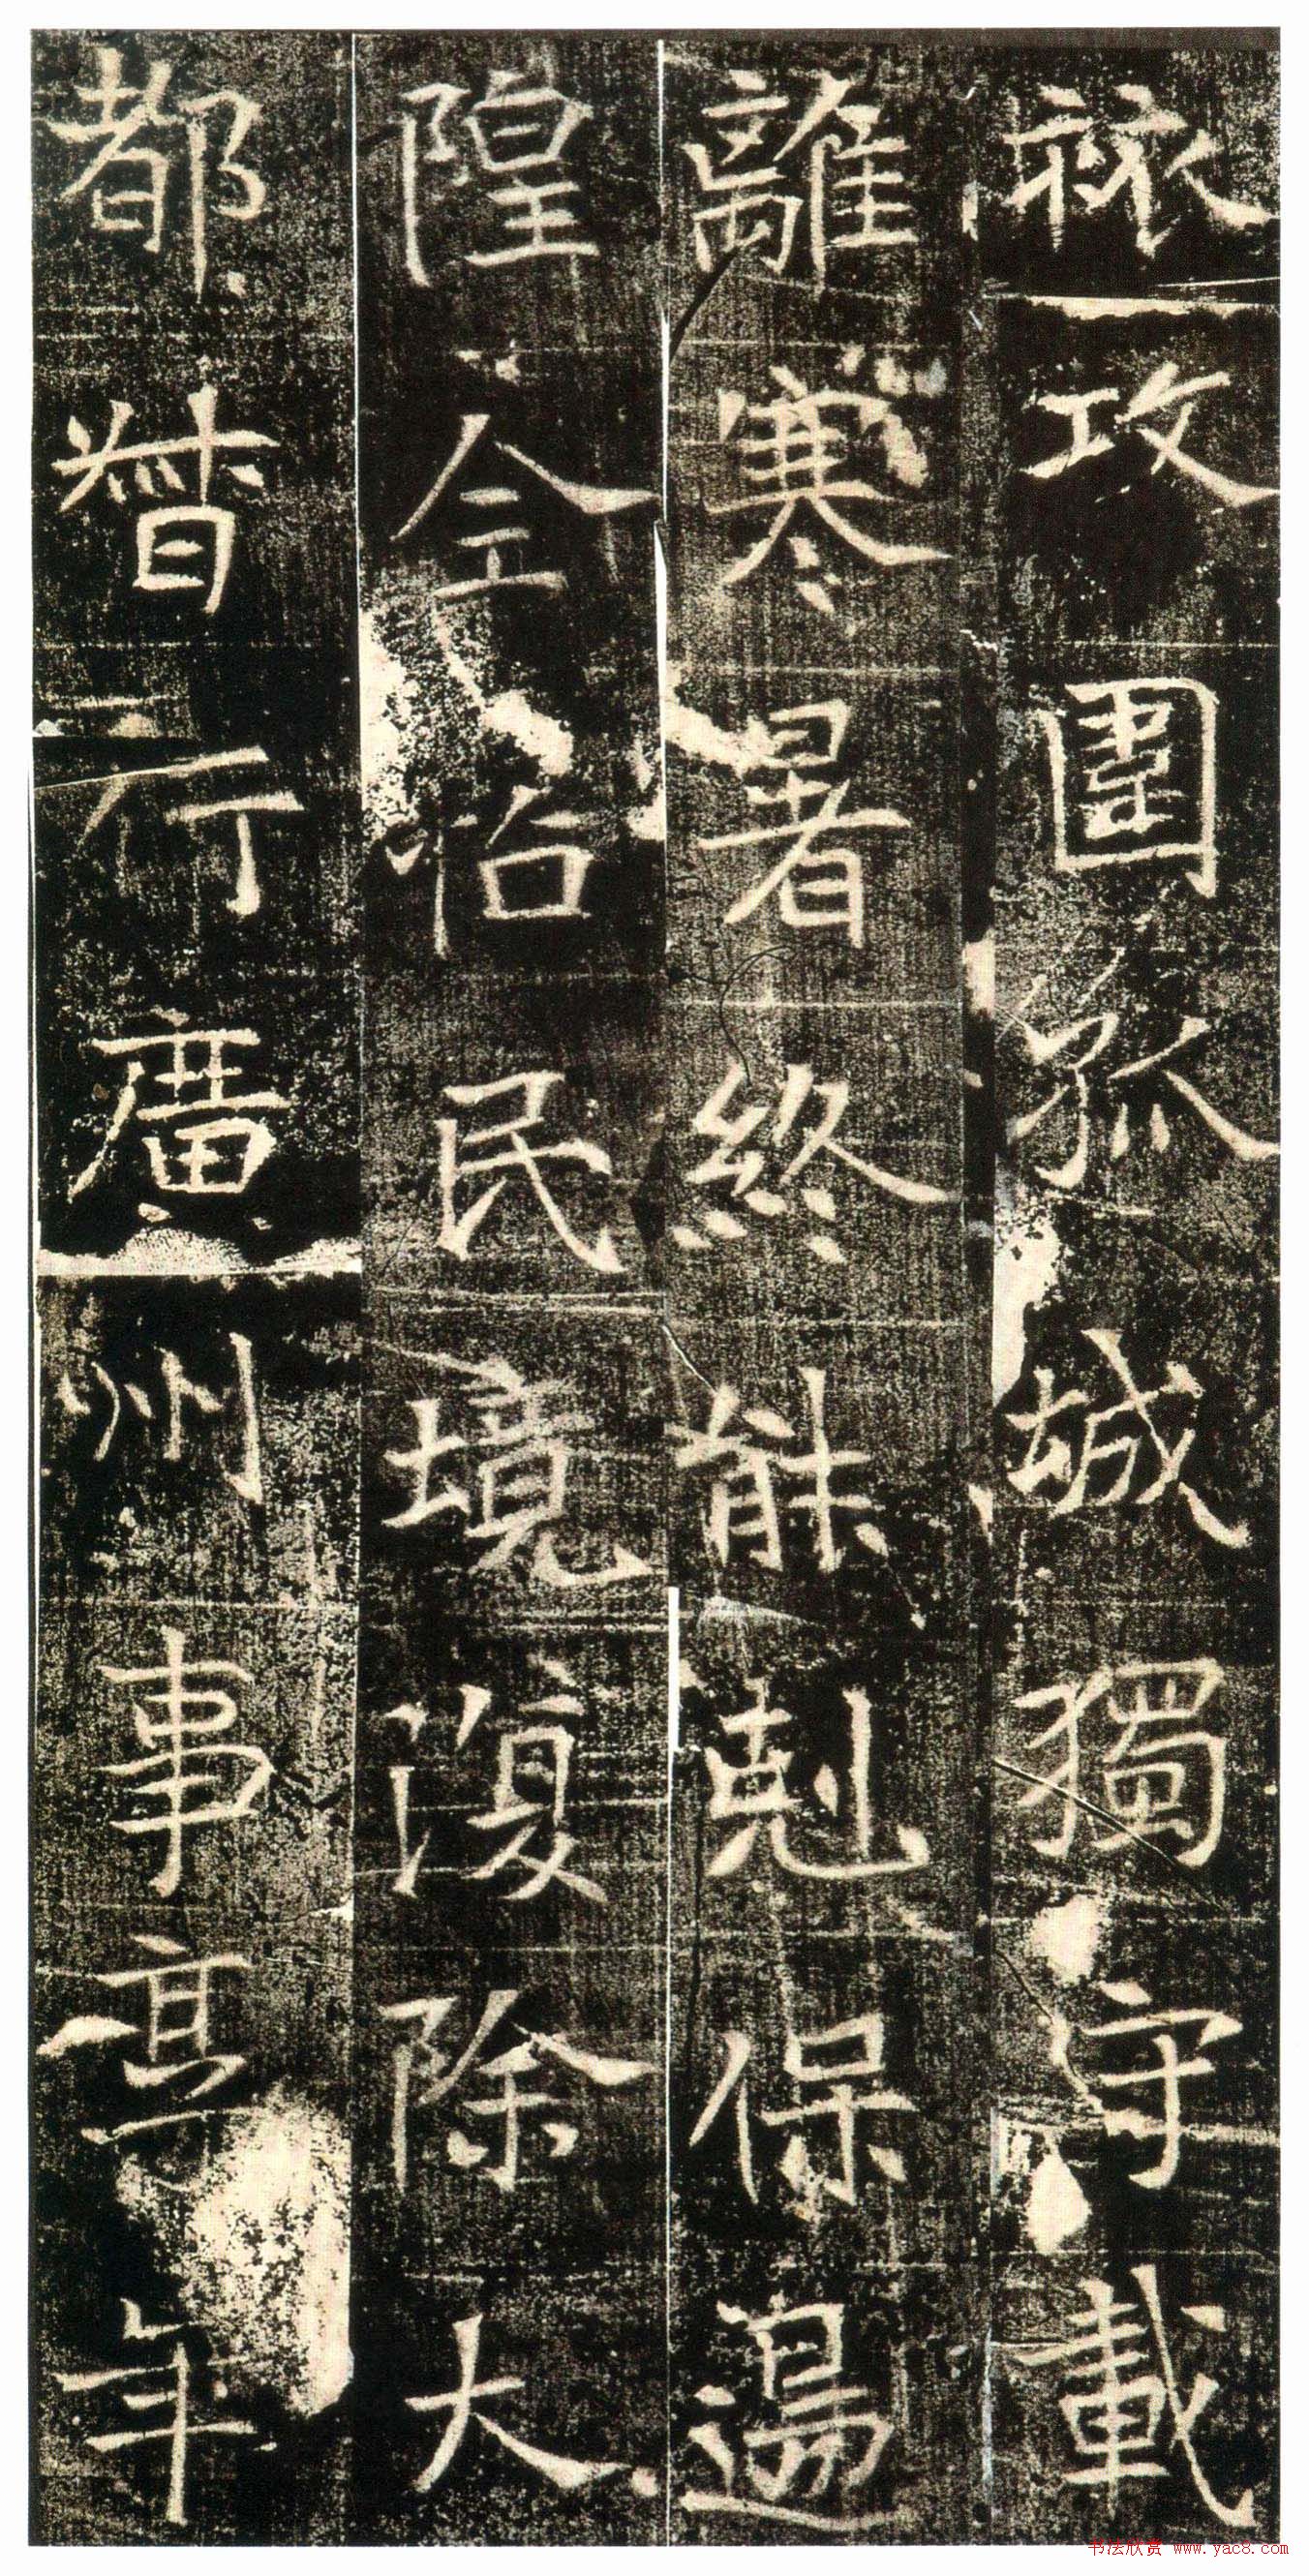 旅攻圍孤城獨守載
離寒暑終能剋保邊
隍全怡民境復除大
都督行廣州事京年
书法欣赏 www.yac8.com